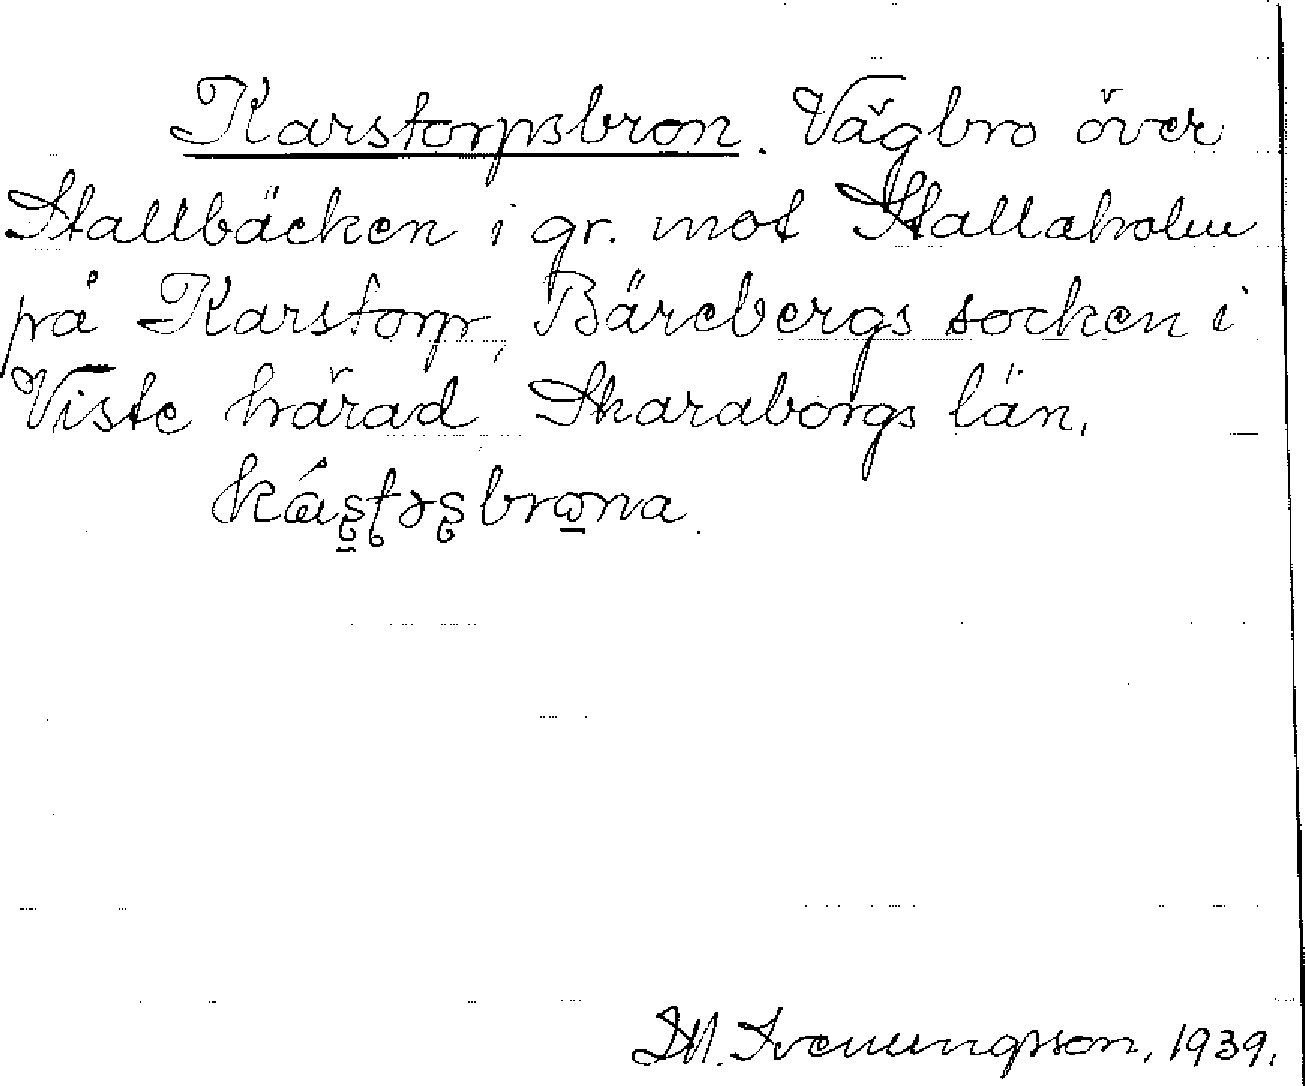 Karstorpsbron. Vägbro över
Stallbäcken i gr. mot Stallaholm
på Karstorp, Bärebergs socken i
Viste härad, Skaraborgs län.
S. M. Svenungsson, 1939.